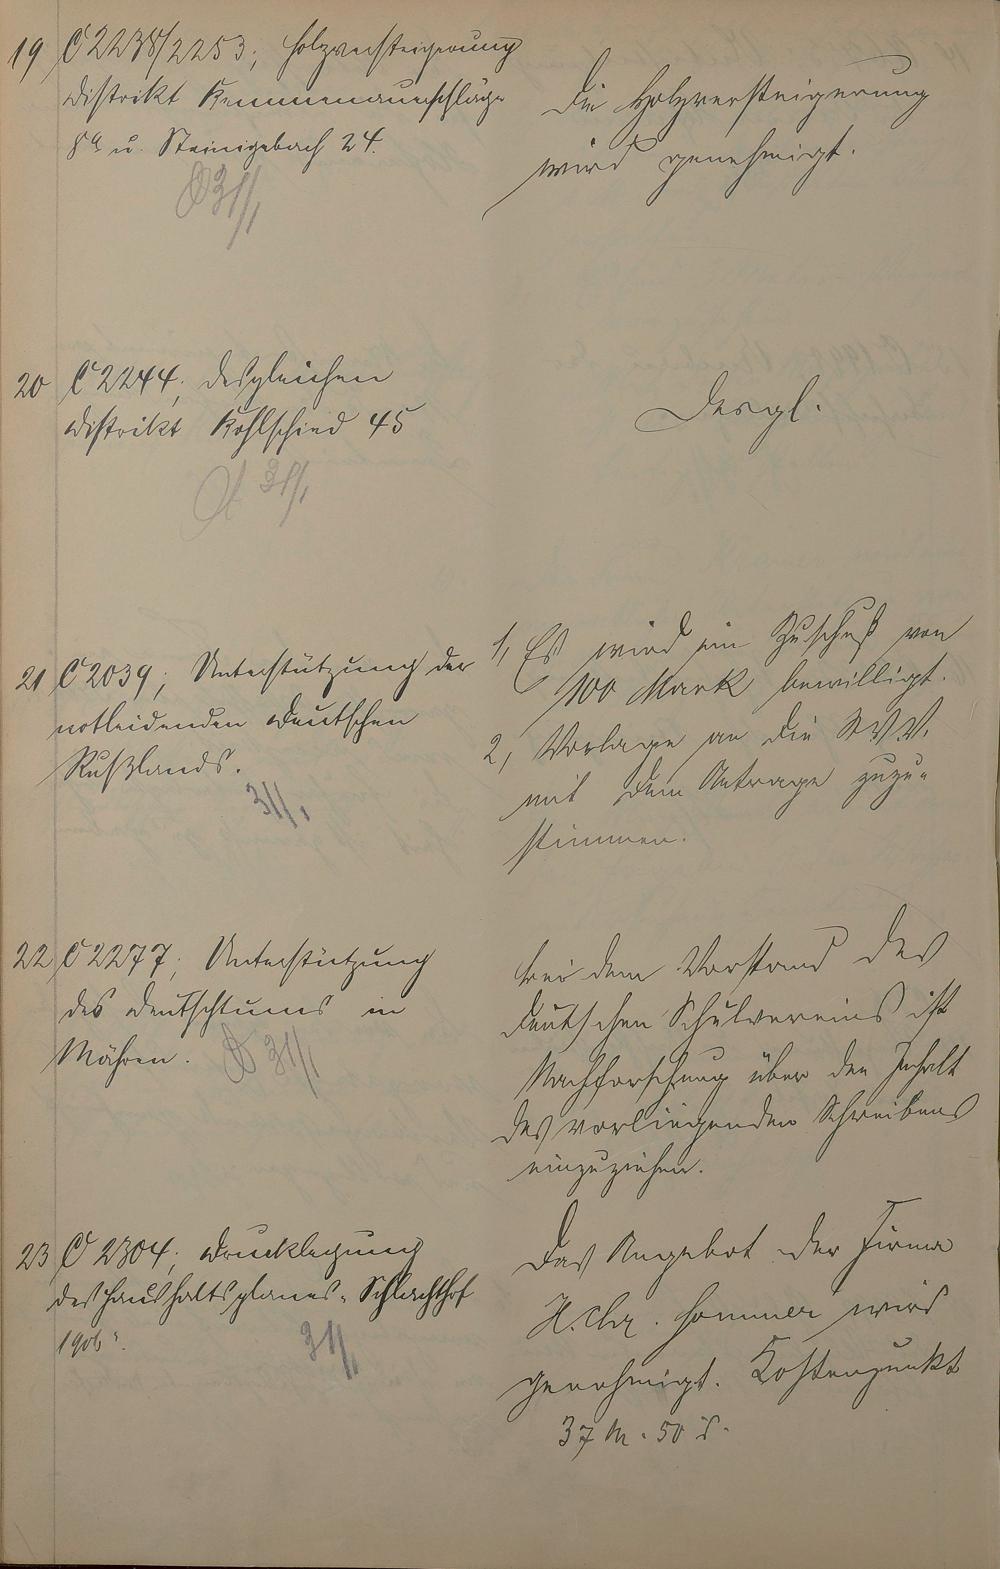 19 C 2238/2253; Holzversteigerung
Distrikt
8a u. Steinigebach 24.
31/1
Die Holzversteigerung
wird genehmigt.
20 C 2244; desgleichen
Distrikt Kohlschied 45
31/1
Desgl.
21 C 2039; Unterstützung der
notleidenden Deutschen
Rußlands.
31/1
1, Es wird ein Zuschuß von
100 Mark bewilligt.
2, Vorlage an die
mit dem Antrage zuzu-
stimmen.
22 C 2277; Unterstützung
des Deutschtums in
Mähren.
31/1
Bei dem Vorstand des
deutschen Schulvereins ist
Nachforschung über den Inhalt
des vorliegenden Schreibens
einzuziehen.
23 C 2304; Drucklegung
des Haushaltsplanes "Schlachthof
1906".
31/1
Das Angebot der Firma
H. Chr. Sommer wird
genehmigt. Kostenpunkt
37 M. 50 d.